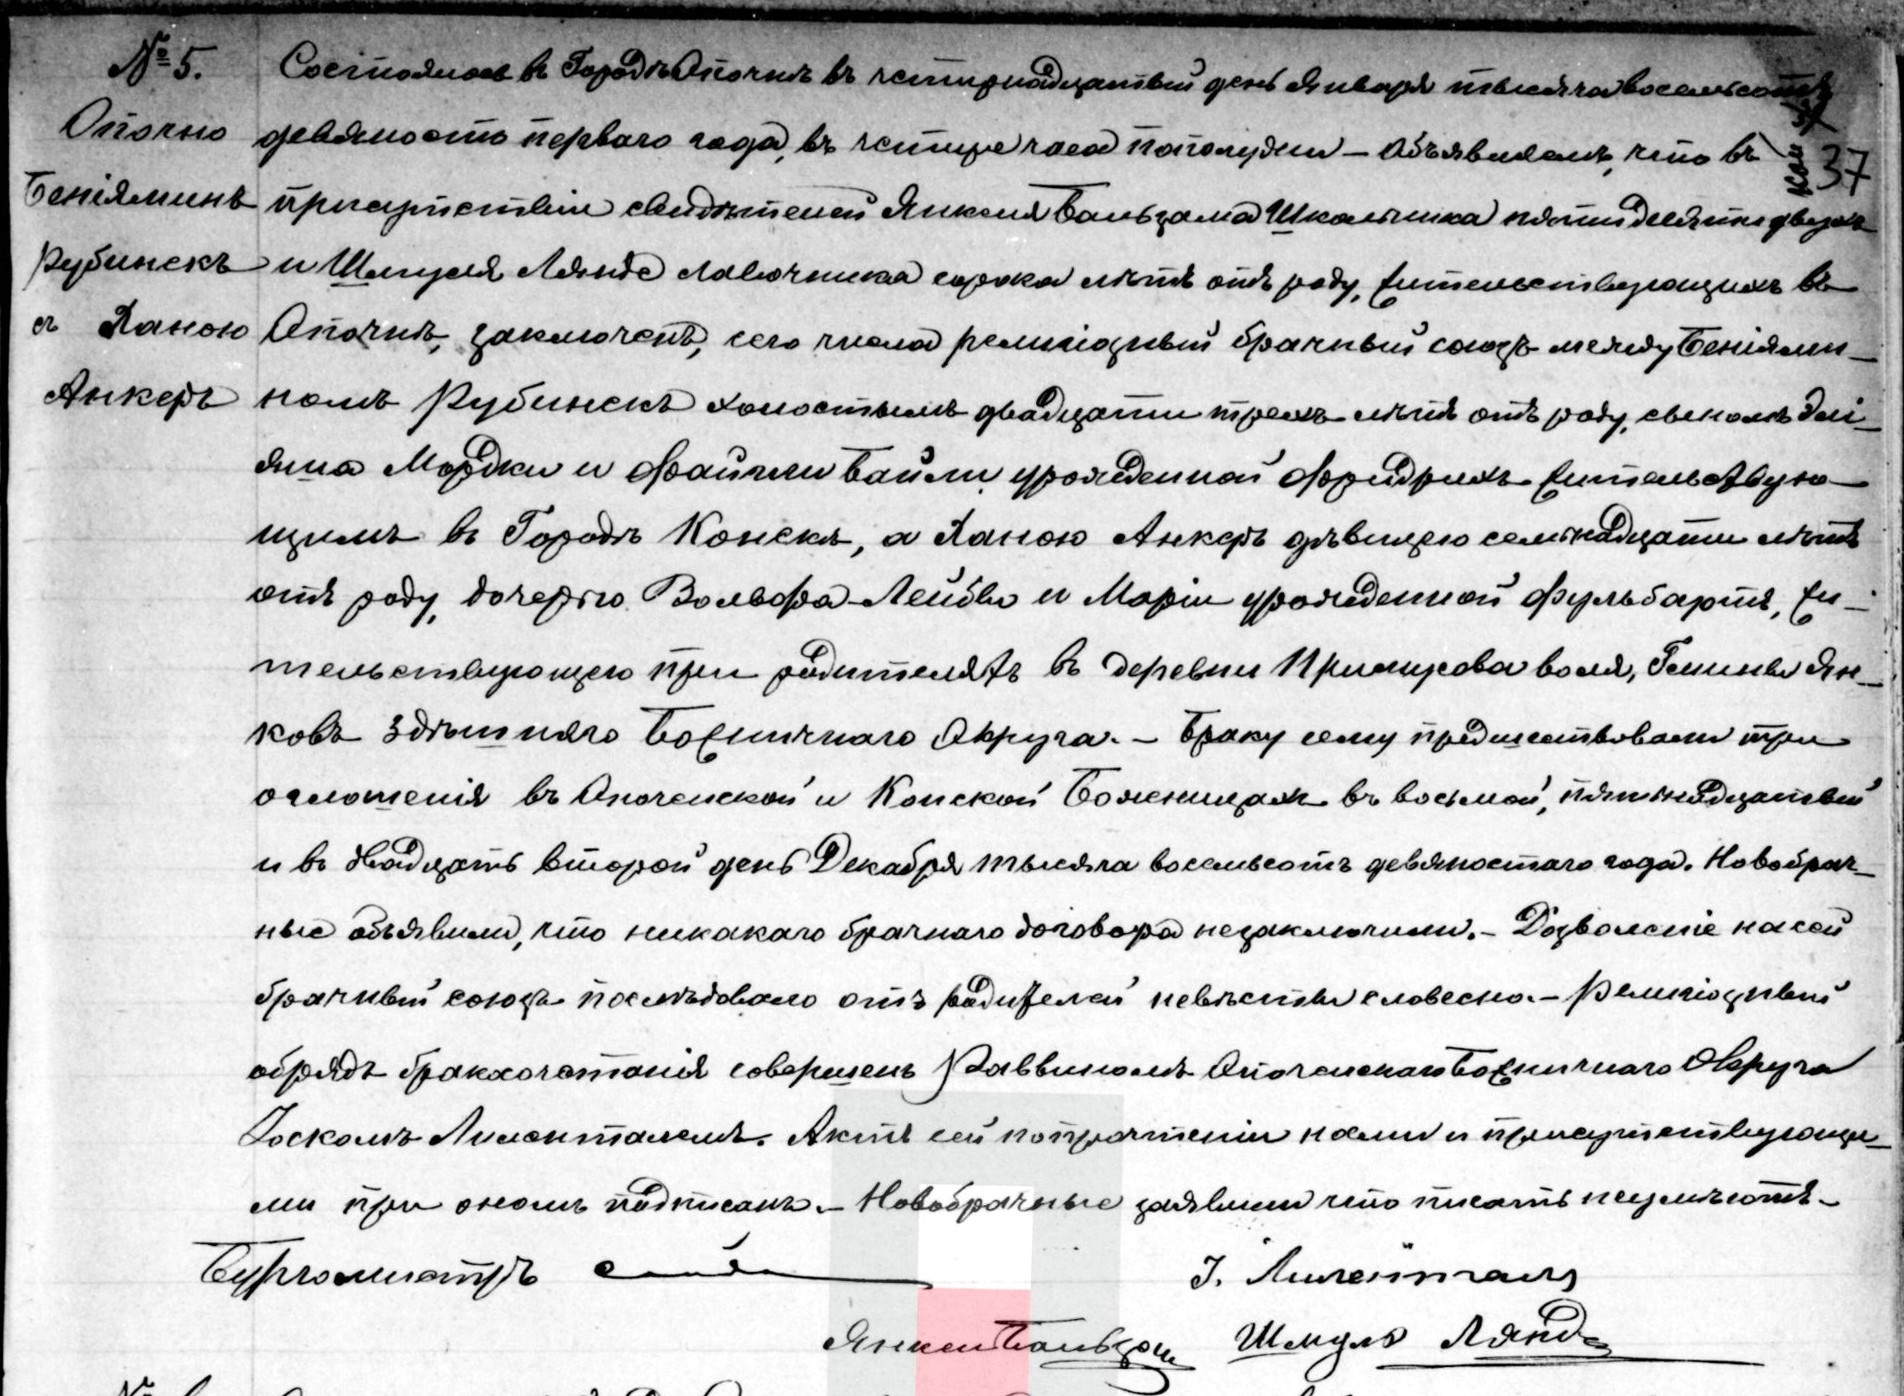 № 5.
Опочно
Беніяминъ
Рубинекъ
съ Ханою
Анкеръ
Состоялось въ Городѣ Опочнѣ въ четырнадцатый день Января тысяча восемьсотъ
девяносто перваго года, въ четыре часа пополудни – Объявляемъ, что въ
37
присутствіи свидѣтелей Янкеля Бальзама Школьника пятидесяти двухъ
и Шмуля Лянде лавочника сорока лѣтъ отъ роду, жительствующихъ въ
Опочнѣ, заключенъ, сего числа религіозный брачный союзъ между Беніями–
номъ Рубинекъ холостымъ двадцати трехъ лѣтъ отъ роду, сыномъ Элі–
яша Мордки и Файгли Байли урожденной Фридрихъ жительствую–
щимъ въ Городѣ Конскѣ, а Ханою Анкеръ дѣвицею семнадцати лѣтъ
отъ роду, дочерью Вольфа–Лейбы и Маріи урожденной Фульбартъ, жи–
тельствующею при родителяхъ въ деревни Примусова воля, Гмины Ян–
ковъ Здѣшняго Божничнаго Округа. – Браку сему предшествовали три
оглошенія въ Опоченской и Конской Боженицахъ въ восьмой, пятнадцатый
и въ двадцать второй день Декабря тысяча восемьсотъ девяностаго года. Новобрач–
ные объявили, что никакаго брачнаго договора незаключили. – Дозволеніе на сей
брачный союзъ послѣдовало отъ родителей невѣсты словесно. – Религіозный
обрядъ бракосочетанія совершенъ Раввиномъ Опоченскаго Божничнаго Округа
Іоскомъ Лиленталемъ. Актъ сей попрочтеніи нами и присутствующи–
ми при ономъ подписанъ. – Новобрачные заявили что писать неумѣютъ. –
Бургомистръ
І. Лиленталь
Янкель Бальзам Шмуль Лянде